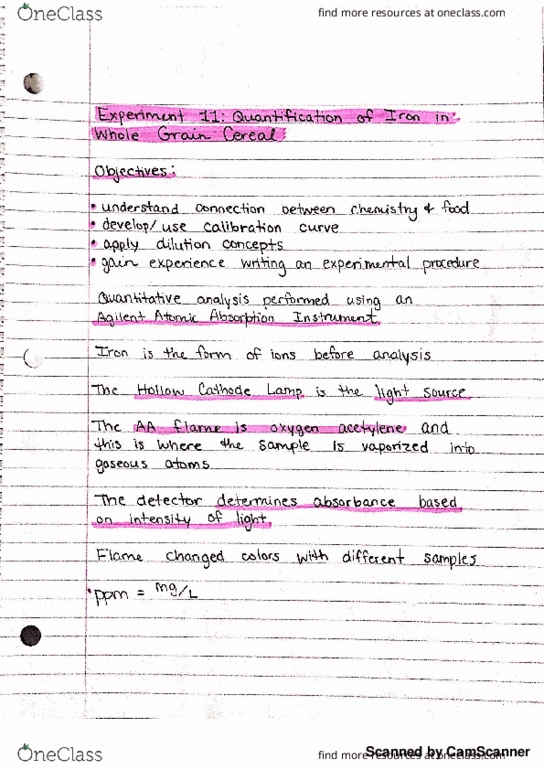 OneClass
find more resources at oneclass.com
Experiment 11: Quantification of Iron in
Whole Grain Cereal
Objectives:
• understand connection between chemistry & food
• develop/use calibration curve
• apply dilution concepts
• gain experience writing an experimental procedure
Quantitative analysis performed using an
Agilent Atomic Absorption Instrument
Iron is the form of ions before analysis
The Hollow Cathode Lamp is the light source
The AA flame is oxygen acetylene and
this is where the sample is vaporized into
gaseous atoms
The detector determines absorbance based
on intensity of light
Flame changed colors with different samples
• ppm = mg/L
OneClass
find more resources at oneclass.com
Scanned by CamScanner